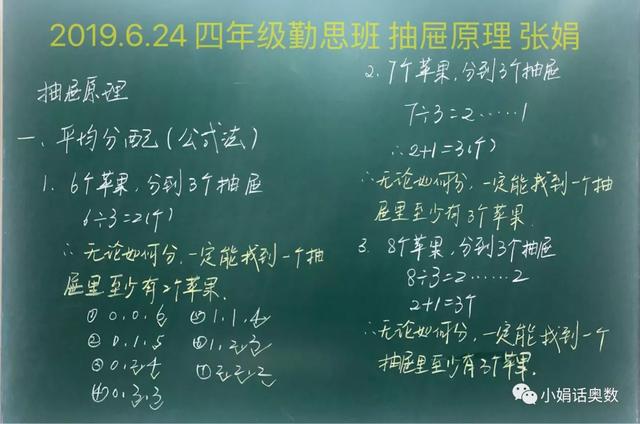 2019.6.24 四年级勤思班 抽屉原理 张娟
抽屉原理
一、平均分配(公式法)
1. 6个苹果,分到3个抽屉
6÷3=2(个)
∴无论如何分,一定能找到一个抽
屉里至少有2个苹果.
① 0.0.6 ⑤ 1.1.4
② 0.1.5 ⑥ 1.2.3
③ 0.2.4 ⑦ 2.2.2
④ 0.3.3
2. 7个苹果,分到3个抽屉
7÷3=2……1
∴2+1=3(个)
∴无论如何分,一定能找到一个抽
屉里至少有3个苹果.
3. 8个苹果,分到3个抽屉
8÷3=2……2
2+1=3个
∴无论如何分,一定能找到一个
抽屉里至少有3个苹果.
小娟话奥数